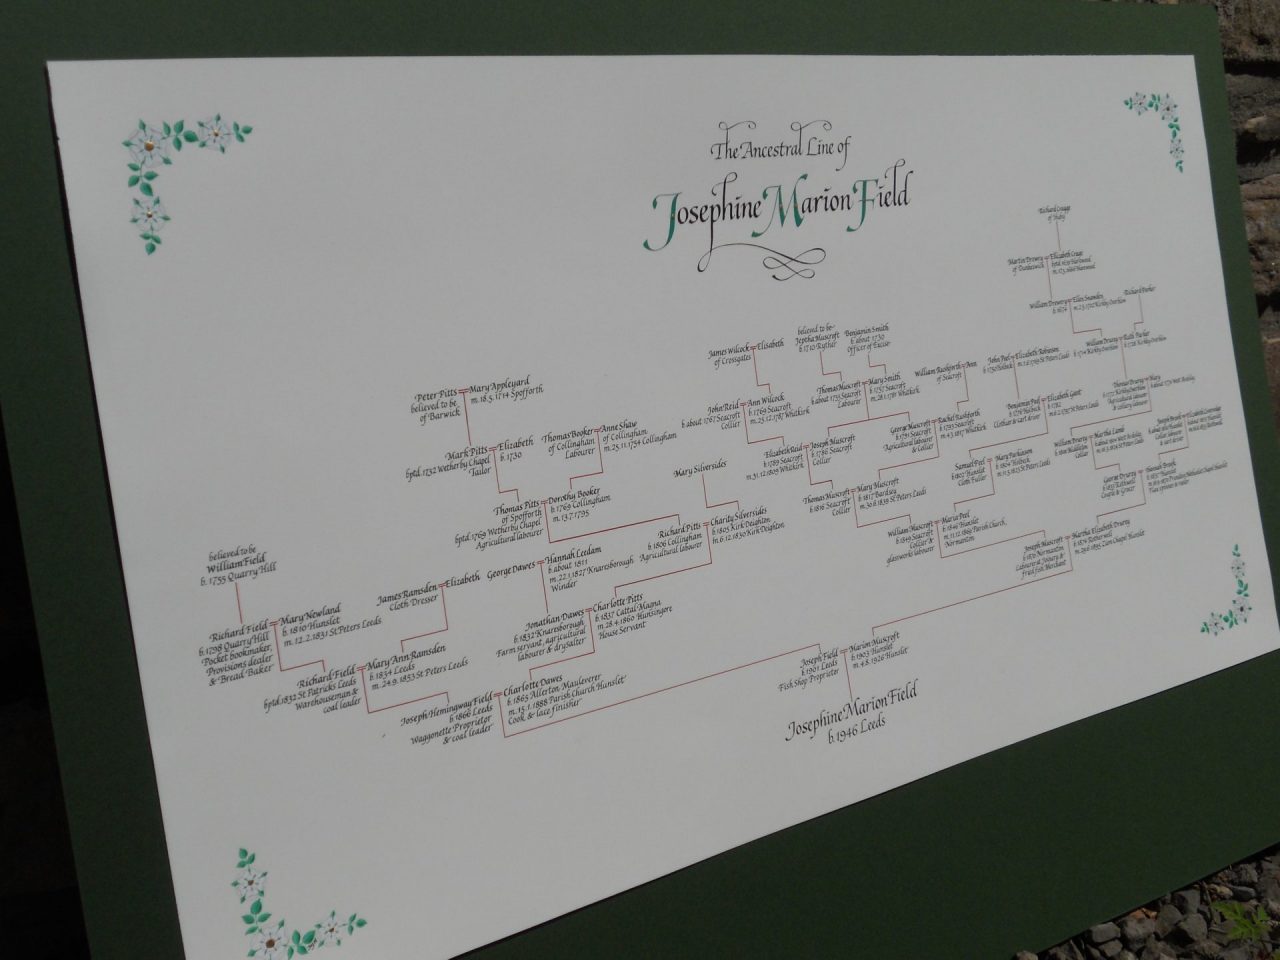 The Ancestral Line of
Josephine Marion Field
Richard Cragge
Martin Drewry = Elizabeth Cragg
of Dunkeswick
William Drewry = Ellen Snawden
b.1674
Richard Parker
William Drury = Ruth Parker
James Wilcock = Elisabeth
of Crossgates
believed to be
Jeptha Muscroft
b.1710 Ryther
Benjamin Smith
b.about 1730
Officer of Excise
Thomas Muscroft = Mary Smith
b.about 1755 Seacroft
Labourer
b.1757 Seacroft
m.28.1.1781 Whitkirk
William Rushforth = Ann
of Seacroft
John Peel = Elizabeth Robinson
b.1750 Holbeck
Thomas Drury = Mary
Peter Pitts = Mary Appleyard
believed to be
of Barwick
m.18.5.1714 Spofforth
John Reid = Ann Wilcock
b.about 1767 Seacroft
Collier
b.1769 Seacroft
m.25.12.1787 Whitkirk
George Muscroft = Rachel Rushforth
b.1791 Seacroft
Agricultural labourer
& Collier
b.1795 Seacroft
m.4.5.1817 Whitkirk
Benjamin Peel = Elizabeth Gant
b.1776 Holbeck
Clothier & Cart driver
b.1782
Mark Pitts = Elizabeth
bptd.1732 Wetherby Chapel
Tailor
b.1730
Thomas Booker = Anne Shaw
of Collingham
Labourer
of Collingham
m.25.11.1754 Collingham
Elizabeth Reid = Joseph Muscroft
b.1789 Seacroft
m.31.12.1809 Whitkirk
b.1786 Seacroft
Collier
Samuel Peel = Mary Parkinson
b.1802 Hunslet
Cloth Fuller
b.1804 Holbeck
m.11.5.1823 St Peters Leeds
William Drury = Martha Lumb
Collier
Mary Silversides
Thomas Pitts = Dorothy Booker
of Spofforth
bptd.1769 Wetherby Chapel
Agricultural labourer
b.1769 Collingham
m.13.7.1795
Thomas Muscroft = Mary Muscroft
b.1816 Seacroft
Collier
b.1817 Bardsey
m.30.6.1839 St Peters Leeds
George Drury = Hannah Brook
Richard Pitts = Charity Silversides
b.1806 Collingham
Agricultural labourer
b.1805 Kirk Deighton
m.6.12.1830 Kirk Deighton
William Muscroft = Maria Peel
b.1849 Seacroft
Collier &
glassworks labourer
b.1849 Hunslet
m.11.12.1869 Parish Church,
Normanton
Joseph Muscroft = Martha Elizabeth Drury
b.1870 Normanton
Labourer at Joinery &
Fried fish Merchant
b.1874 Rothwell
m.29.6.1895 Cam Chapel Hunslet
believed to be
William Field
b.1755 Quarry Hill
James Ramsden = Elizabeth
Cloth Dresser
George Dawes = Hannah Leedam
b.about 1811
m.22.1.1827 Knaresborough
Winder
Richard Field = Mary Newland
b.1798 Quarry Hill
Pocket bookmaker,
Provisions dealer
& Bread Baker
b.1810 Hunslet
m.12.2.1831 St Peters Leeds
Jonathan Dawes = Charlotte Pitts
b.1832 Knaresborough
Farm servant, agricultural
labourer & drysalter
b.1837 Cattal Magna
m.28.4.1860 Hunsingore
House Servant
Richard Field = Mary Ann Ramsden
bptd.1832 St Patricks Leeds
Warehouseman &
coal leader
b.1834 Leeds
m.24.9.1853 St Peters Leeds
Joseph Hemingway Field = Charlotte Dawes
b.1866 Leeds
Waggonette Proprietor
& coal leader
b.1865 Allerton Mauleverer
m.15.1.1888 Parish Church Hunslet
Cook & lace finisher
Joseph Field = Marion Muscroft
b.1901 Leeds
Fish Shop Proprietor
b.1903 Hunslet
m.4.8.1926 Hunslet
Josephine Marion Field
b.1946 Leeds